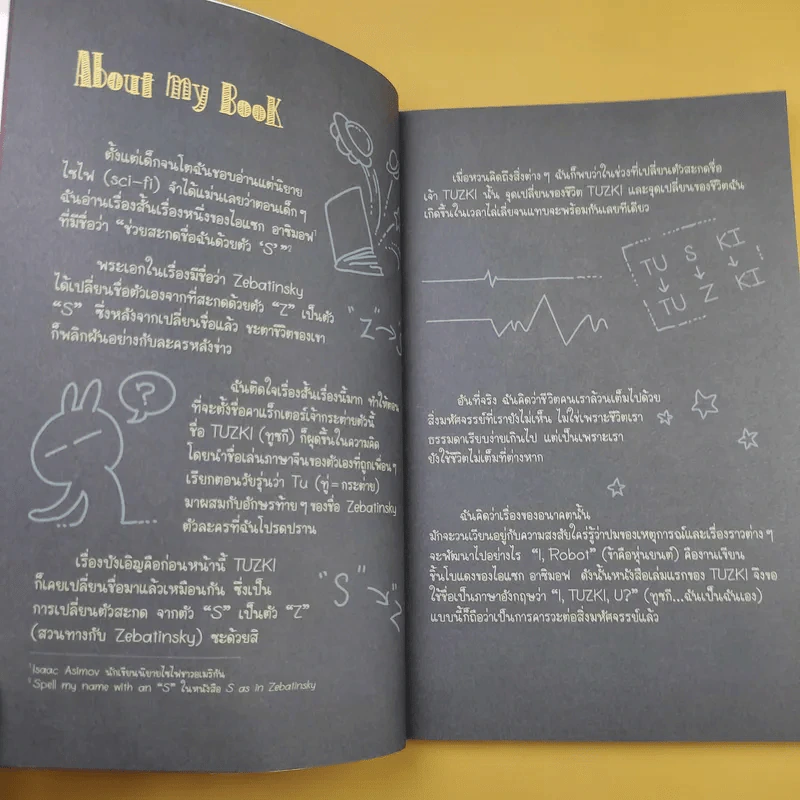 About my Book
ตั้งแต่เด็กจนโตฉันชอบอ่านแต่นิยาย
ไซไฟ (sci-fi) จำได้แม่นเลยว่าตอนเด็กๆ
ฉันอ่านเรื่องสั้นเรื่องหนึ่งของไอแซก อาซิมอฟ¹
ที่มีชื่อว่า “ช่วยสะกดชื่อฉันด้วยตัว ‘S’ ”²
พระเอกในเรื่องมีชื่อว่า Zebatinsky
ได้เปลี่ยนชื่อตัวเองจากที่สะกดด้วยตัว “Z” เป็นตัว
“S” ซึ่งหลังจากเปลี่ยนชื่อแล้ว ชะตาชีวิตของเขา
ก็พลิกผันอย่างกับละครหลังข่าว
"Z"→
?
ฉันติดใจเรื่องสั้นเรื่องนี้มาก ทำให้ตอน
ที่จะตั้งชื่อคาแร็กเตอร์เจ้ากระต่ายตัวนี้
ชื่อ TUZKI (ทูซกี) ก็ผุดขึ้นในความคิด
โดยนำชื่อเล่นภาษาจีนของตัวเองที่ถูกเพื่อนๆ
เรียกตอนวัยรุ่นว่า Tu (ทู่=กระต่าย)
มาผสมกับอักษรท้ายๆ ของชื่อ Zebatinsky
ตัวละครที่ฉันโปรดปราน
เรื่องบังเอิญคือก่อนหน้านี้ TUZKI
ก็เคยเปลี่ยนชื่อมาแล้วเหมือนกัน ซึ่งเป็น
การเปลี่ยนตัวสะกด จากตัว “S” เป็นตัว “Z”
(สวนทางกับ Zebatinsky) ซะด้วยสิ
"S"→"Z
¹Isaac Asimov นักเขียนนิยายไซไฟชาวอเมริกัน
²Spell my name with an “S” ในหนังสือ S as in Zebatinsky
เมื่อหวนคิดถึงสิ่งต่างๆ ฉันก็พบว่าในช่วงที่เปลี่ยนตัวสะกดชื่อ
เจ้า TUZKI นั้น จุดเปลี่ยนของชีวิต TUZKI และจุดเปลี่ยนของชีวิตฉัน
เกิดขึ้นในเวลาไล่เลี่ยจนแทบจะพร้อมกันเลยทีเดียว
TU S KI
TU Z KI
อันที่จริง ฉันคิดว่าชีวิตคนเราล้วนเต็มไปด้วย
สิ่งมหัศจรรย์ที่เรายังไม่เห็น ไม่ใช่เพราะชีวิตเรา
ธรรมดาเรียบง่ายเกินไป แต่เป็นเพราะเรา
ยังใช้ชีวิตไม่เต็มที่ต่างหาก
ฉันคิดว่าเรื่องของอนาคตนั้น
มักจะวนเวียนอยู่กับความสงสัยใคร่รู้ว่าปมของเหตุการณ์และเรื่องราวต่างๆ
จะพัฒนาไปอย่างไร “I, Robot” (ข้าคือหุ่นยนต์) คืองานเขียน
ขึ้นโบแดงของไอแซก อาซิมอฟ ดังนั้นหนังสือเล่มแรกของ TUZKI จึงขอ
ใช้ชื่อเป็นภาษาอังกฤษว่า “I, TUZKI, U?” (ทูซกี...ฉันเป็นฉันเอง)
แบบนี้ก็ถือว่าเป็นการคารวะต่อสิ่งมหัศจรรย์แล้ว